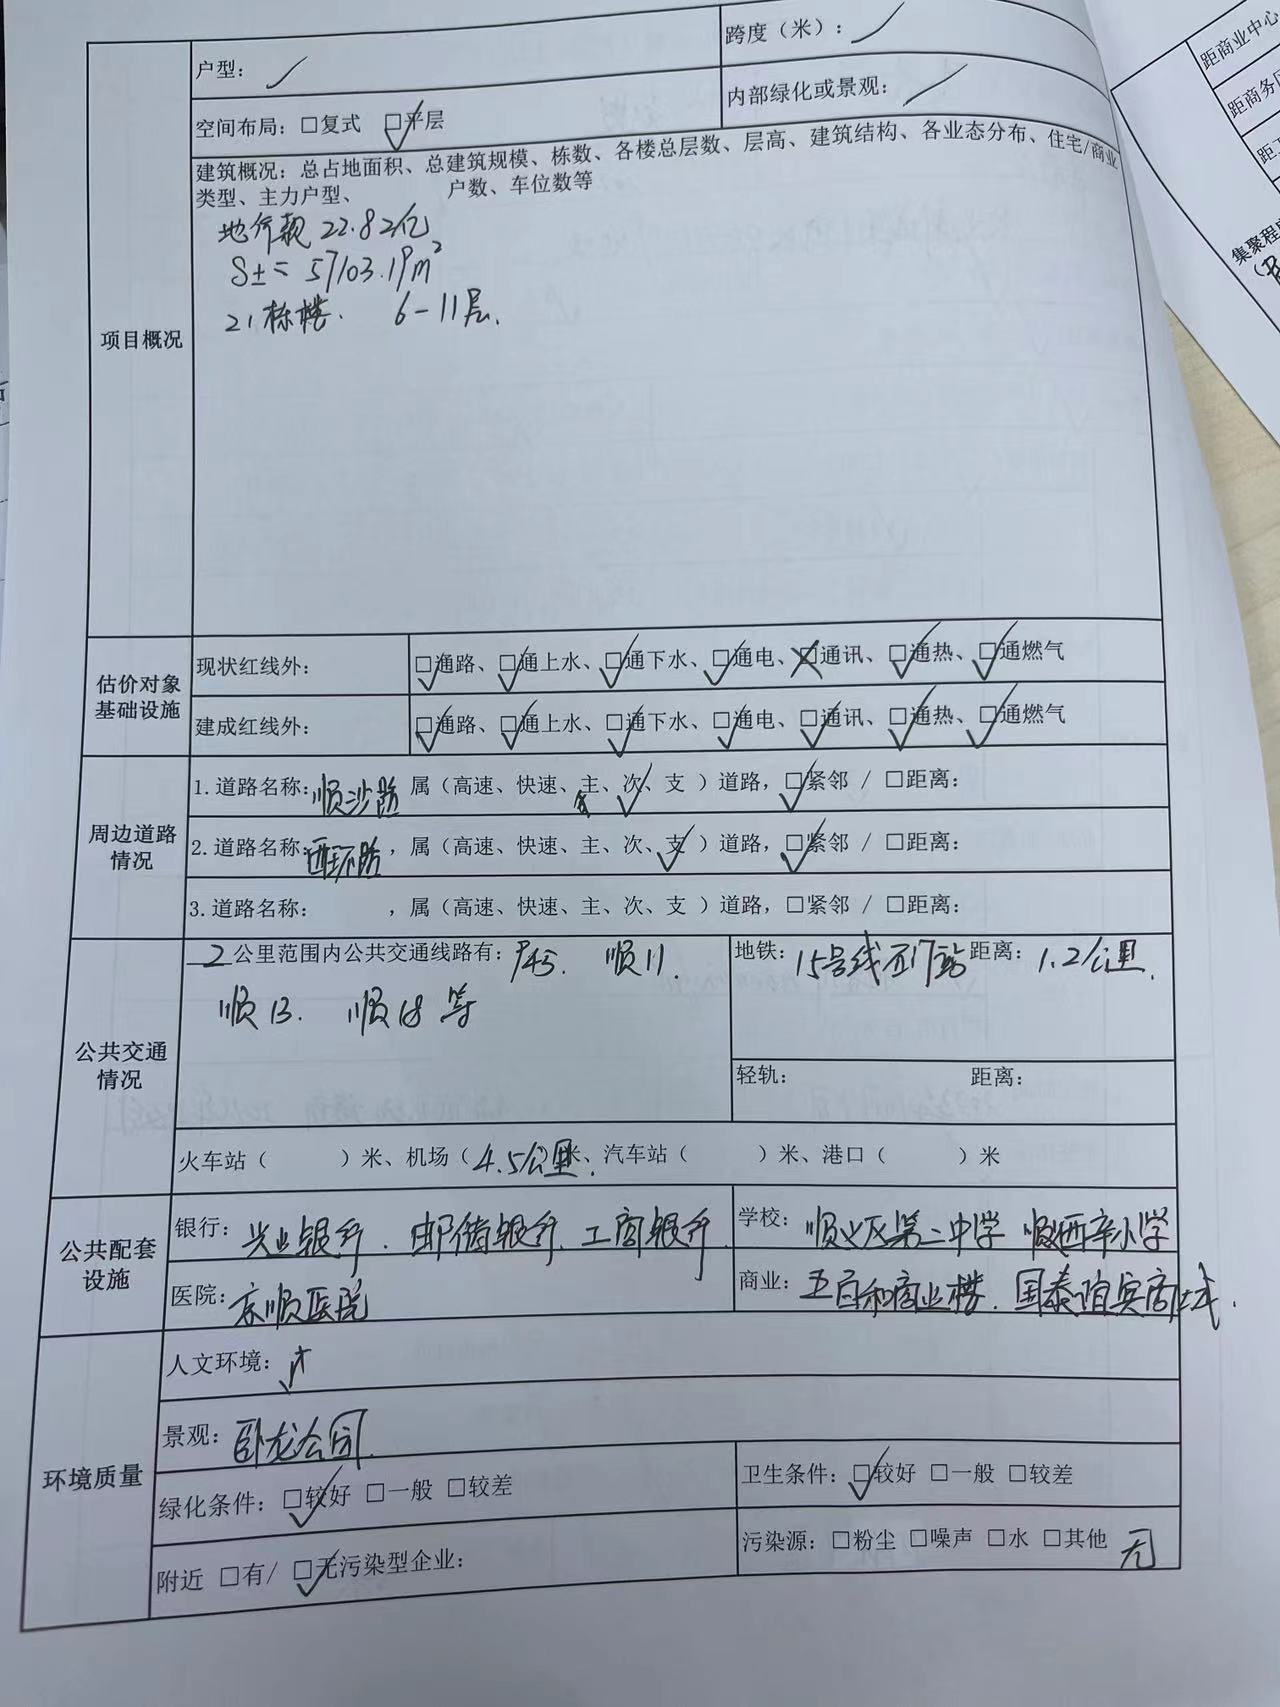 户型：
跨度（米）：
空间布局：□复式 □平层
内部绿化或景观：
项目概况
建筑概况：总占地面积、总建筑规模、栋数、各楼总层数、层高、建筑结构、各业态分布、住宅/商业
类型、主力户型、 户数、车位数等
地价款 22.82亿
S土= 57103.19m²
21栋楼. 6-11层.
估价对象
基础设施
现状红线外： □通路、□通上水、□通下水、□通电、□通讯、□通热、□通燃气
建成红线外： □通路、□通上水、□通下水、□通电、□通讯、□通热、□通燃气
周边道路
情况
1.道路名称：顺沙路 属（高速、快速、主、次、支 ）道路，□紧邻 / □距离：
2.道路名称：西环路 ，属（高速、快速、主、次、支 ）道路，□紧邻 / □距离：
3.道路名称： ，属（高速、快速、主、次、支 ）道路，□紧邻 / □距离：
公共交通
情况
2 公里范围内公共交通线路有： 顺11.
顺13. 顺18 等
地铁：15号线石门站 距离：1.2公里.
轻轨： 距离：
火车站（ ）米、机场（4.5公里）米、汽车站（ ）米、港口（ ）米
公共配套
设施
银行：兴业银行. 邮储银行. 工商银行
学校：顺义区第二中学 顺义西辛小学
医院：京顺医院
商业： 商业楼. 国泰 宾商城.
环境质量
人文环境：
景观：卧龙公园.
绿化条件：□较好 □一般 □较差
卫生条件：□较好 □一般 □较差
附近 □有/ □无污染型企业：
污染源：□粉尘 □噪声 □水 □其他 无
距商业中心
距商务
距
集聚程度